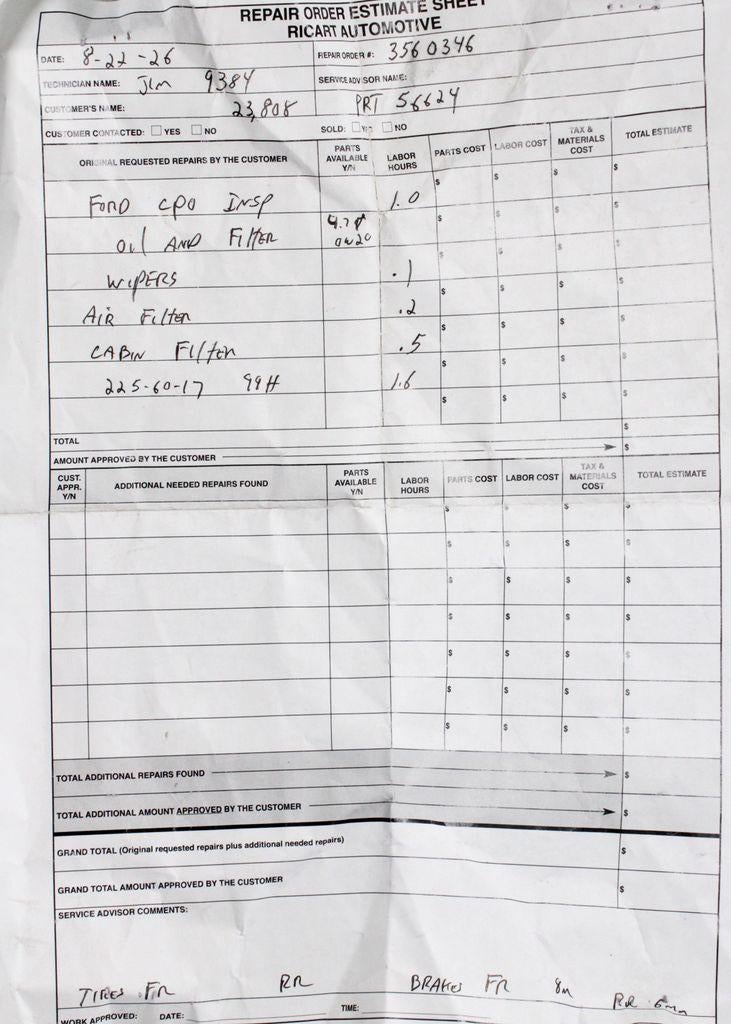 REPAIR ORDER ESTIMATE SHEET
RICART AUTOMOTIVE
DATE: 8-22-26 REPAIR ORDER #: 3560346
TECHNICIAN NAME: Jim 9384 SERVICE ADVISOR NAME:
CUSTOMER'S NAME: 23,808 PRT 56624
CUSTOMER CONTACTED: YES NO SOLD: YES NO
ORIGINAL REQUESTED REPAIRS BY THE CUSTOMER PARTS AVAILABLE Y/N LABOR HOURS PARTS COST LABOR COST TAX & MATERIALS COST TOTAL ESTIMATE
FORD CPO INSP 1.0 $ $ $ $
OIL AND FILTER 0W20 $ $ $ $
WIPERS .1 $ $ $ $
AIR FILTER .2 $ $ $ $
CABIN FILTER .5 $ $ $ $
225-60-17 99H 1.6 $ $ $ $
$ $ $ $
TOTAL $
AMOUNT APPROVED BY THE CUSTOMER $
CUST. APPR. Y/N ADDITIONAL NEEDED REPAIRS FOUND PARTS AVAILABLE Y/N LABOR HOURS PARTS COST LABOR COST TAX & MATERIALS COST TOTAL ESTIMATE
$ $ $ $
$ $ $ $
$ $ $ $
$ $ $ $
$ $ $ $
$ $ $ $
$ $ $ $
TOTAL ADDITIONAL REPAIRS FOUND $
TOTAL ADDITIONAL AMOUNT APPROVED BY THE CUSTOMER $
GRAND TOTAL (Original requested repairs plus additional needed repairs) $
GRAND TOTAL AMOUNT APPROVED BY THE CUSTOMER $
SERVICE ADVISOR COMMENTS:
TIRES FR RR BRAKES FR 8m RR 6mm
WORK APPROVED: DATE: TIME: